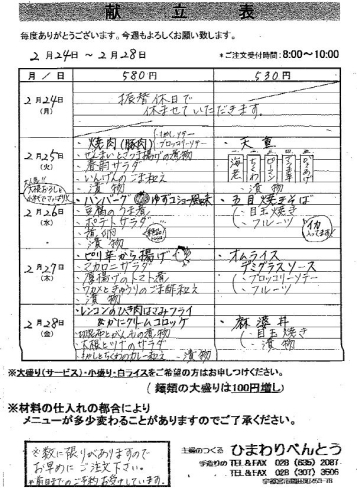 献立表
毎度ありがとうございます。今週もよろしくお願い致します。
2月24日～2月28日
*ご注文受付時間:8:00～10:00
月／日
580円
530円
2月24日
(月)
振替休日で
休ませていただきます。
2月25日
(火)
・焼肉(豚肉)
・ぜんまいとさつま揚げの煮物
・春雨サラダ
・いんげんのごま和え
・漬物
・天重
海老
ちくわ
・漬物
2月26日
(水)
・ハンバーグ ゆずコショー風味
・豆腐のうま煮
・ポテトサラダ
・漬物
・五目焼きそば
・目玉焼き
・フルーツ
2月27日
(木)
・ピリ辛から揚げ
・マカロニサラダ
・厚揚げのトマト煮
・ワカメときゅうりのごま酢和え
・漬物
・オムライス
デミグラスソース
・ブロッコリーソテー
・フルーツ
2月28日
(金)
・レンコンのひき肉はさみフライ
・かにクリームコロッケ
・大根とツナのサラダ
・漬物
・麻婆丼
・目玉焼き
・漬物
※大盛り(サービス)・小盛り・白ライスをご希望の方はお申しつけください。
(麺類の大盛りは100円増し)
※材料の仕入れの都合により
メニューが多少変わることがありますのでご了承ください。
※数に限りがありますので
お早めにご注文下さい。
※前日までのご予約お受けしています。
主婦のつくる ひまわりべんとう
手造りの TEL&FAX 028 (635) 2087
TEL&FAX 028 (307) 3506